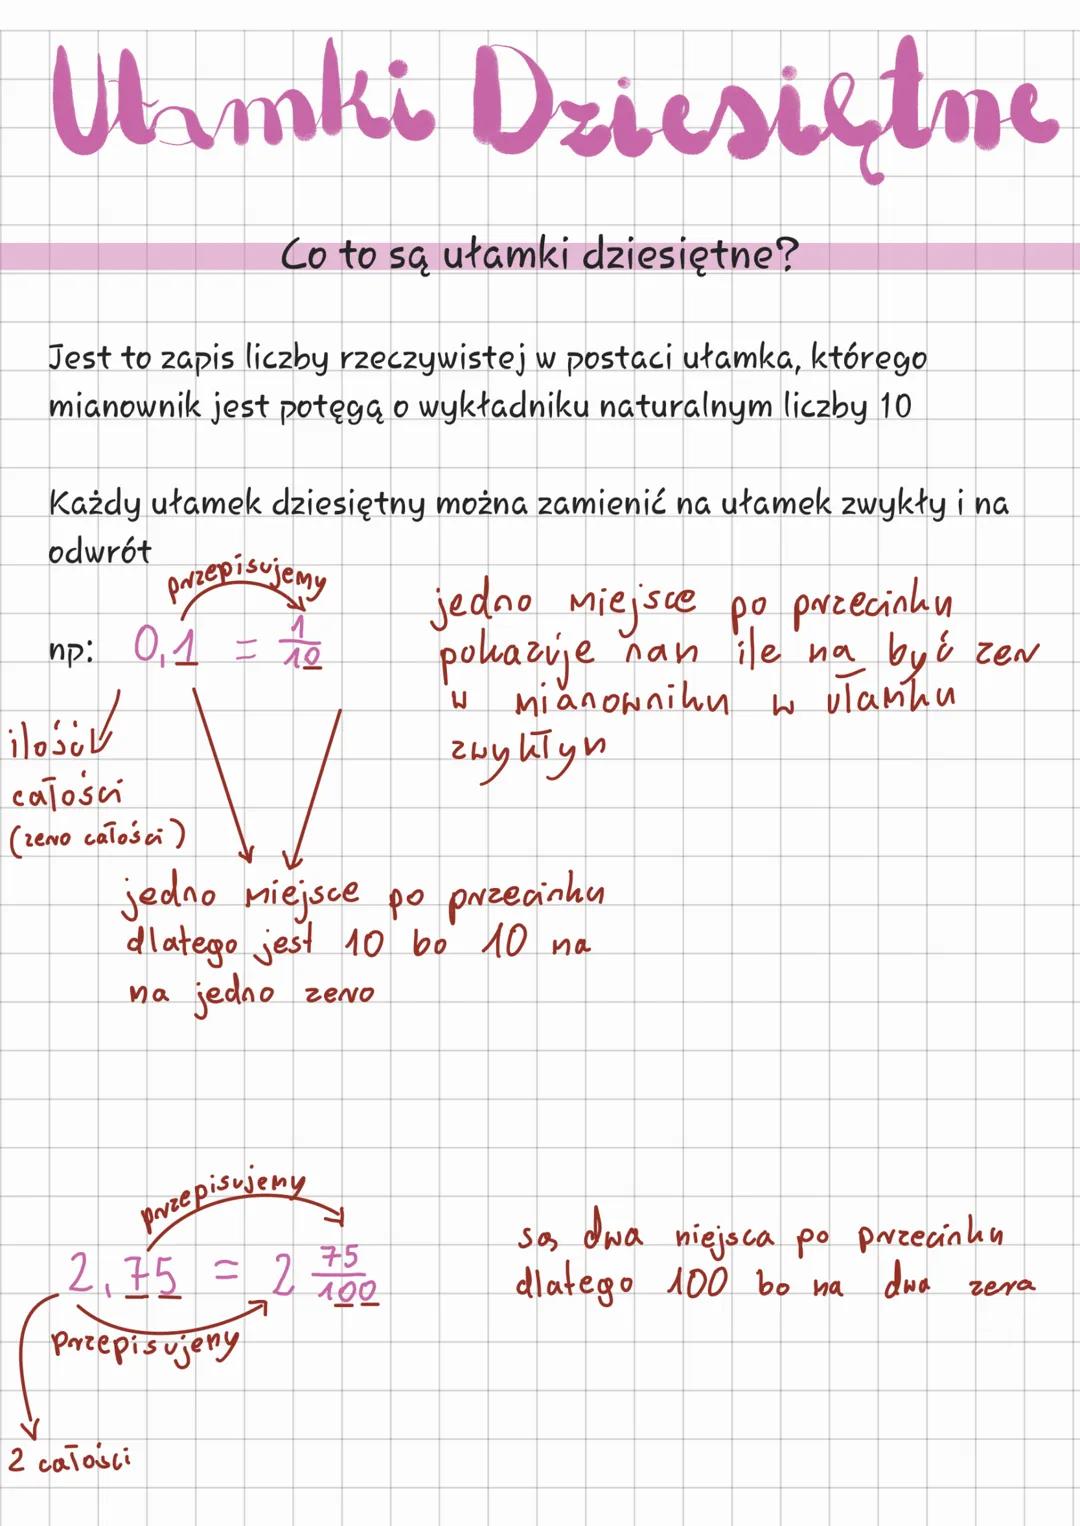 Ułamki Dziesiętne
Co to są ułamki dziesiętne?
Jest to zapis liczby rzeczywistej w postaci ułamka, którego
mianownik jest potęgą o wykładniku naturalnym liczby 10
Każdy ułamek dziesiętny można zamienić na ułamek zwykły i na
odwrót
przepisujemy
np: 0,1 = 1/10
jedno miejsce po przecinku
pokazuje nam ile ma być zer
w mianowniku w ułamku
zwykłym
ilość
całości
(zero całości)
jedno miejsce po przecinku
dlatego jest 10 bo 10 ma
ma jedno zero
przepisujemy
2,75 = 2 75/100
przepisujemy
są dwa miejsca po przecinku
dlatego 100 bo ma dwa zera
2 całości